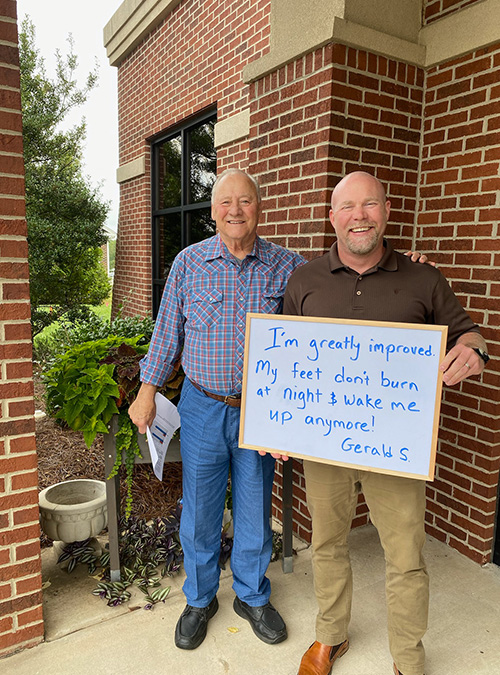 I'm greatly improved.
My feet don't burn
at night & wake me
up anymore!
Gerald S.